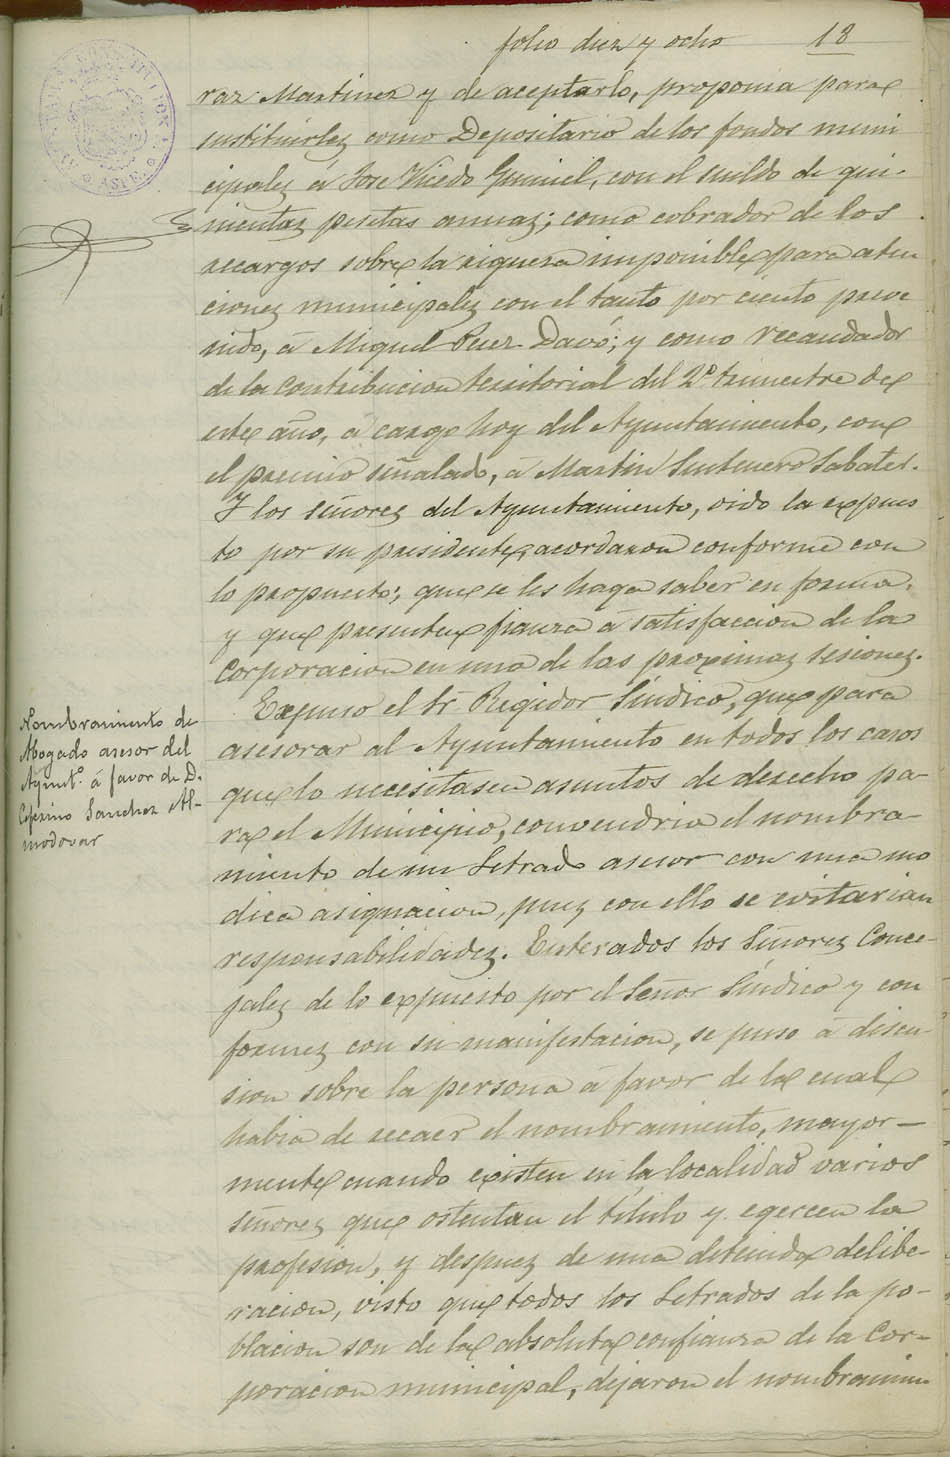 folio diez y ocho 18
raz Martinez y de aceptarlo, proponia para
sustituirles como Depositario de los fondos muni
cipales á Jose Vicedo Gumiel, con el sueldo de qui-
nientas pesetas anuas; como cobrador de los
recargos sobre la riqueza imponible para aten
ciones municipales con el tanto por ciento preve
nido, á Miguel Perez Davó; y como recaudador
de la contribucion territorial del 2º trimestre de
este año, á cargo hoy del Ayuntamiento, con
el premio señalado, á Martin Sabater.
Y los señores del Ayuntamiento, oido la expues
to por su presidente, acordaron conforme con
lo propuesto; que se les haga saber en forma,
y que presenten fianza á satisfaccion de la
Corporacion en una de las proximas sesiones.
Nombramiento de
Abogado asesor del
Ayuntº. á favor de D.
Ceferino Sanchez Al-
modovar
Expuso el Sr Regidor Síndico, que para
asesorar al Ayuntamiento en todos los casos
que lo necesitasen asuntos de derecho pa-
ra el Municipio, convendria el nombra-
miento de un Letrado asesor con una mo
dica asignacion, pues con ello se evitarian
responsabilidades. Enterados los Señores Conce-
jales de lo expuesto por el Señor Síndico y con
formes con su manifestacion, se puso á discu-
sion sobre la persona á favor de la cual
habia de recaer el nombramiento, mayor-
mente cuando existen en la localidad varios
señores que ostentan el título y egercen la
profesion, y despues de una detenida delibe-
racion, visto que todos los Letrados de la po-
blacion son de la absoluta confianza de la Cor-
poracion municipal, dejaron el nombramien